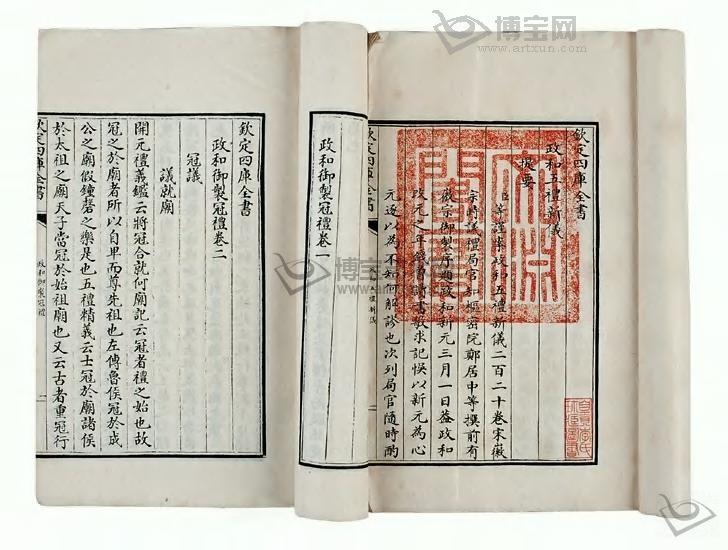 欽定四庫全書
政和五禮新儀
提要
臣等謹案政和五禮新儀二百二十卷宋徽
宗時議禮局官知樞密院鄭居中等撰前有
徽宗御製序題政和新元三月一日蓋政和
改元之年錢曾讀書敏求記悞以新元為心
元遂以為不如何解誤也次列局官隨時酌
政和御製冠禮卷一
欽定四庫全書
政和御製冠禮卷二
冠議
議就廟
開元禮義鑑云將冠合就何廟記云冠者禮之始也故
冠之於廟者所以自卑而尊先祖也左傳魯侯冠於成
公之廟假鐘磬之樂是也五禮精義云士冠於廟諸侯
於太祖之廟天子當冠於始祖廟也又云古者重冠行
欽定四庫全書
政和御製冠禮
博宝网
www.artxun.com
博宝网
www.artxun.com